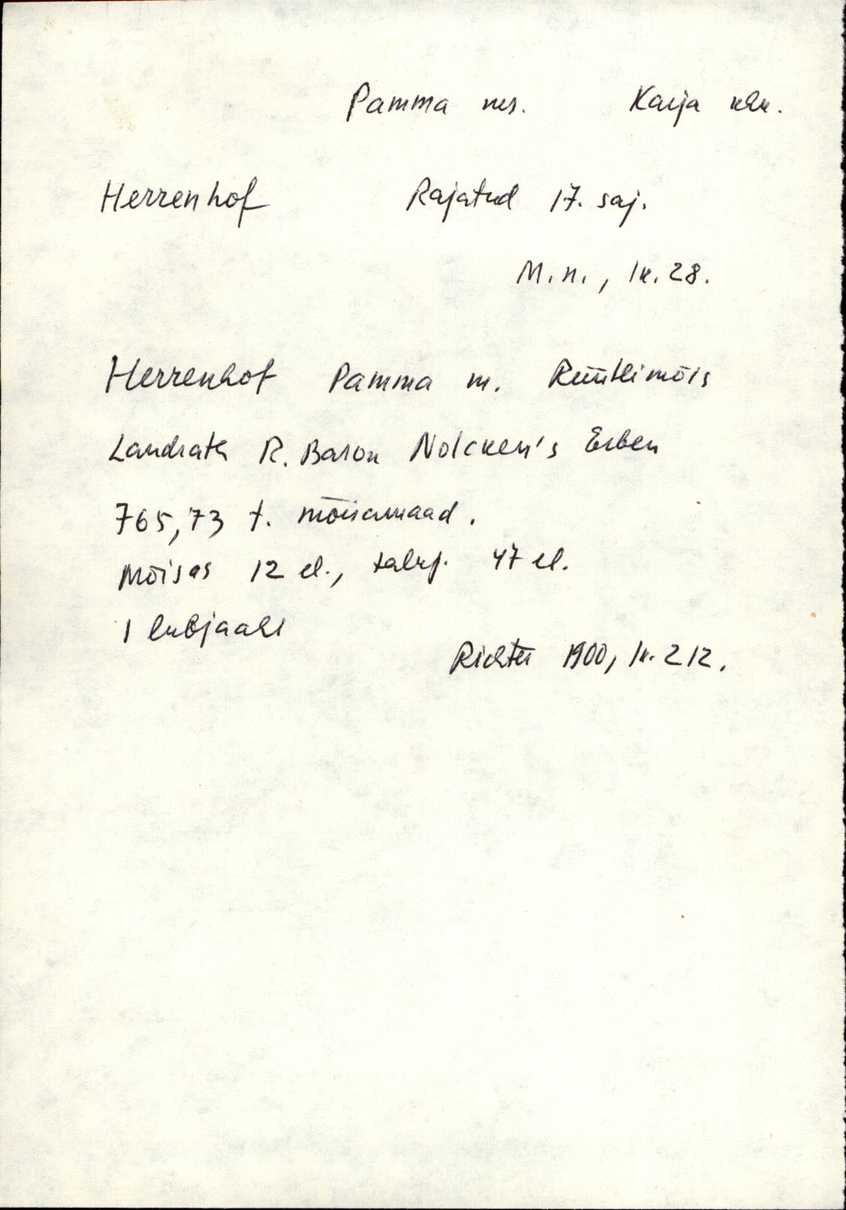 Pamma ms. Karja khk.
Herrenhof Rajatud 17. saj.
M.n., lk. 28.
Herrenhof Pamma m. Rüütlimõis
Landrath R. Baron Nolcken's Erben
765,73 t. mõisamaad.
Mõisas 12 el., talurj. 47 el.
1 lubjaahi
Richter 1900, lk. 212.